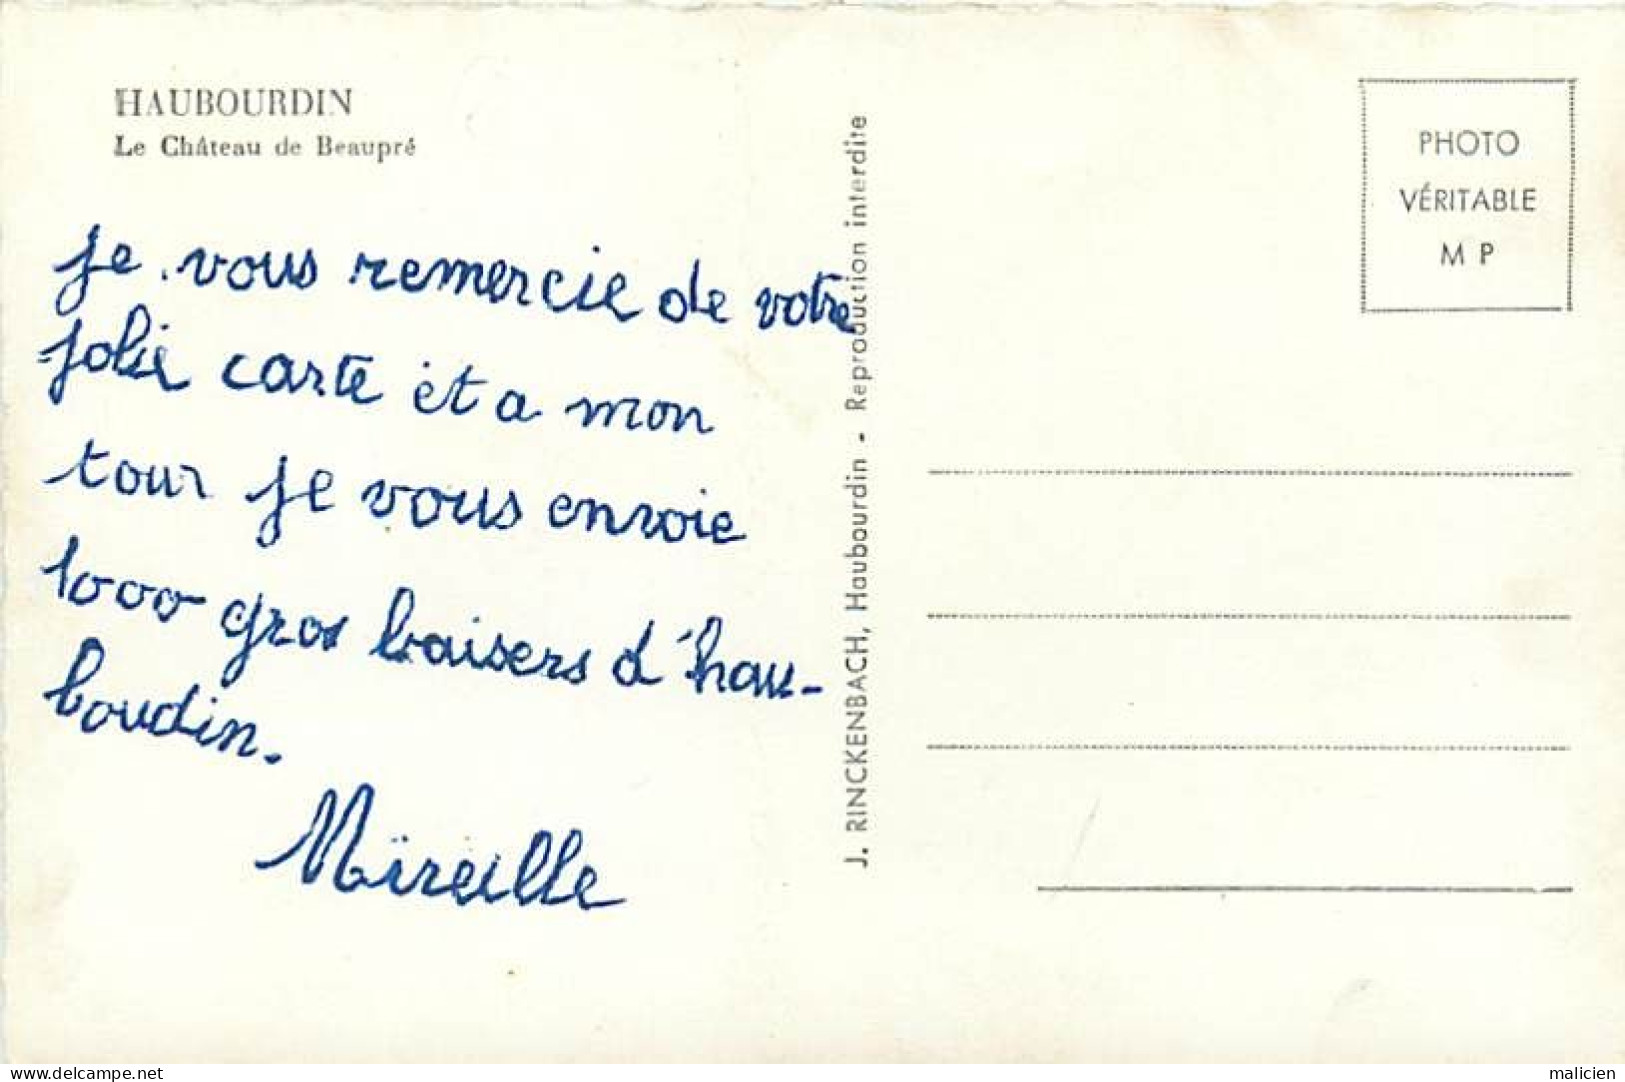 HAUBOURDIN
Le Château de Beaupré
je vous remercie de votre
jolie carte et a mon
tour je vous envoie
1000 gros baisers d'hau-
boudin.
Mireille
J. RINCKENBACH, Haubourdin - Reproduction interdite
PHOTO
VÉRITABLE
M P
delcampe.net
malicien